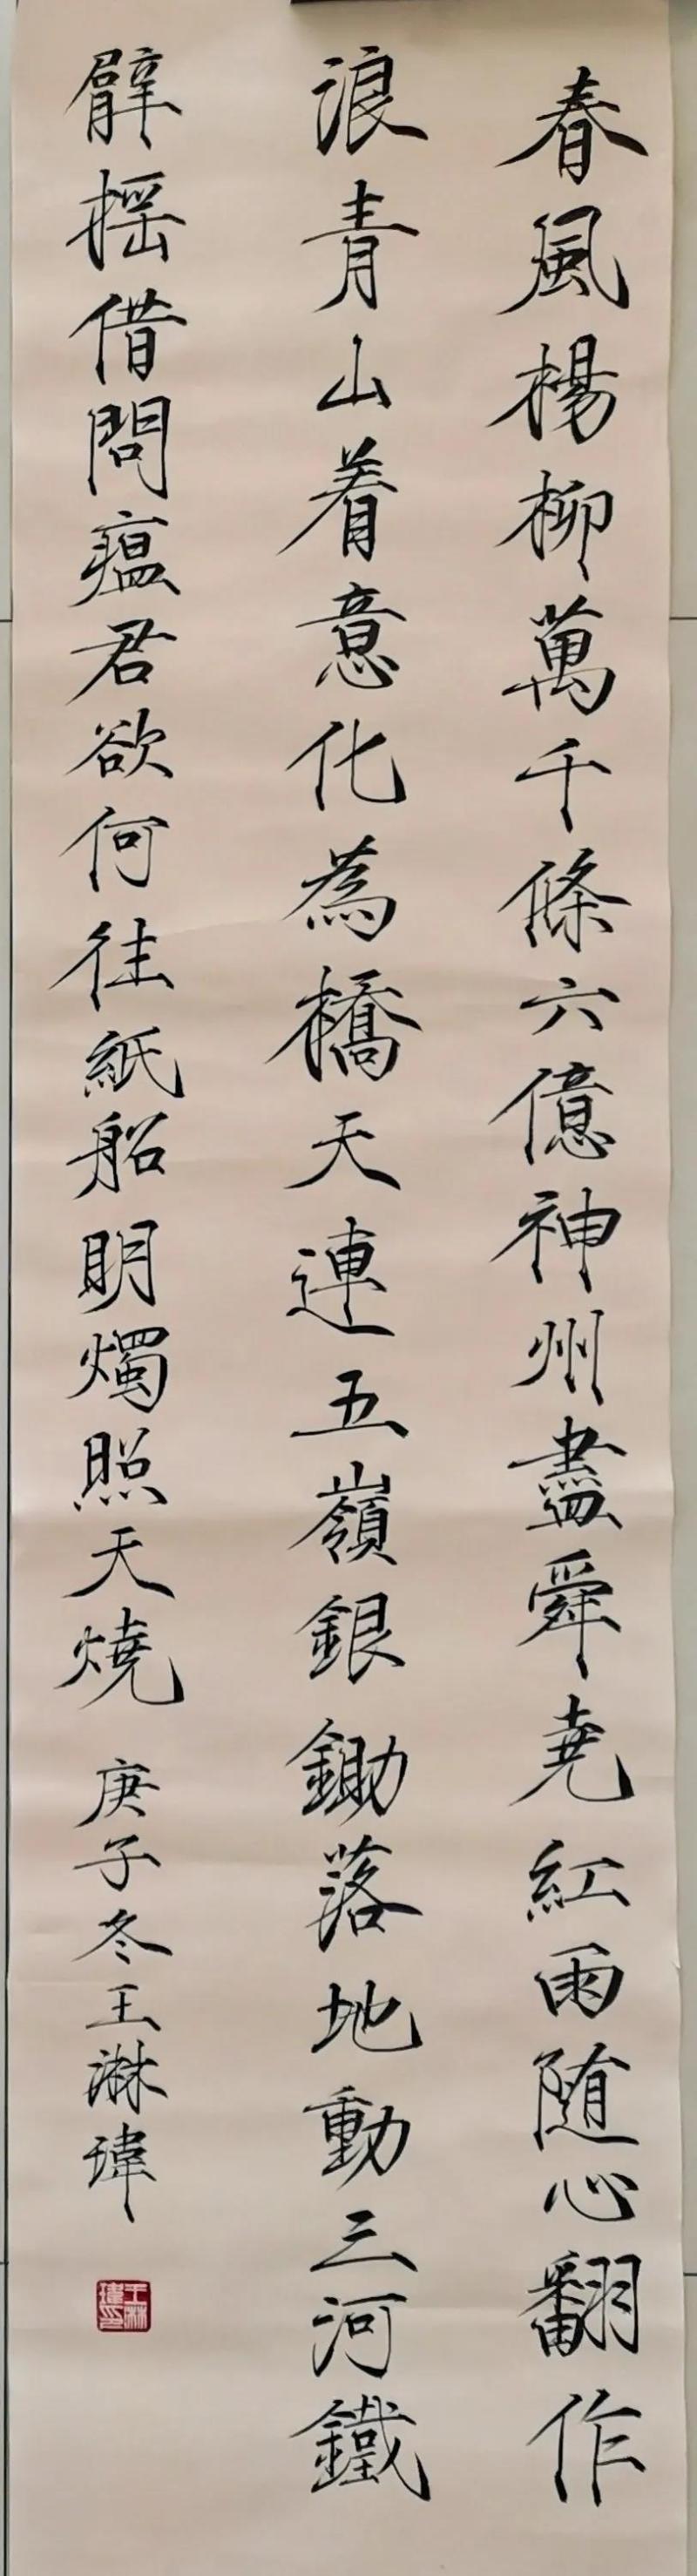 春風楊柳萬千條六億神州盡舜尭紅雨隨心翻作
浪青山着意化為橋天連五嶺銀鋤落地動三河鐵
臂摇借問瘟君欲何往紙船明燭照天燒
庚子冬王淋瑋